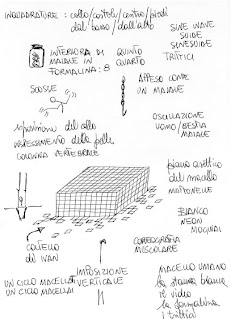 INQUADRATURE : collo/costole/centro/piedi
dal basso/dall'alto
SINE WAVE
SUIDE
SUNESUIDE
TRITTICI
INTERIORA DI
MAIALE IN
FORMALINA: 8
QUINTO
QUARTO
APPESO COME
UN MAIALE
SCOSSE
OSCILLAZIONE
UOMO/BESTIA
MAIALE
torsione del collo
ispessimento della pelle
COLONNA VERTEBRALE
piano asettico
del macello
MATTONELLE
BIANCO
NEON
MOGWAI
COLTELLO
DI WAN
COREOGRAFIA
MUSCOLARE
IMPOSIZIONE
VERTICALE
UN CICLO MACELLAI
UN CICLO MACELLAI
MACELLO UMANO
la stanza bianca
il video
la formalina
i trittici